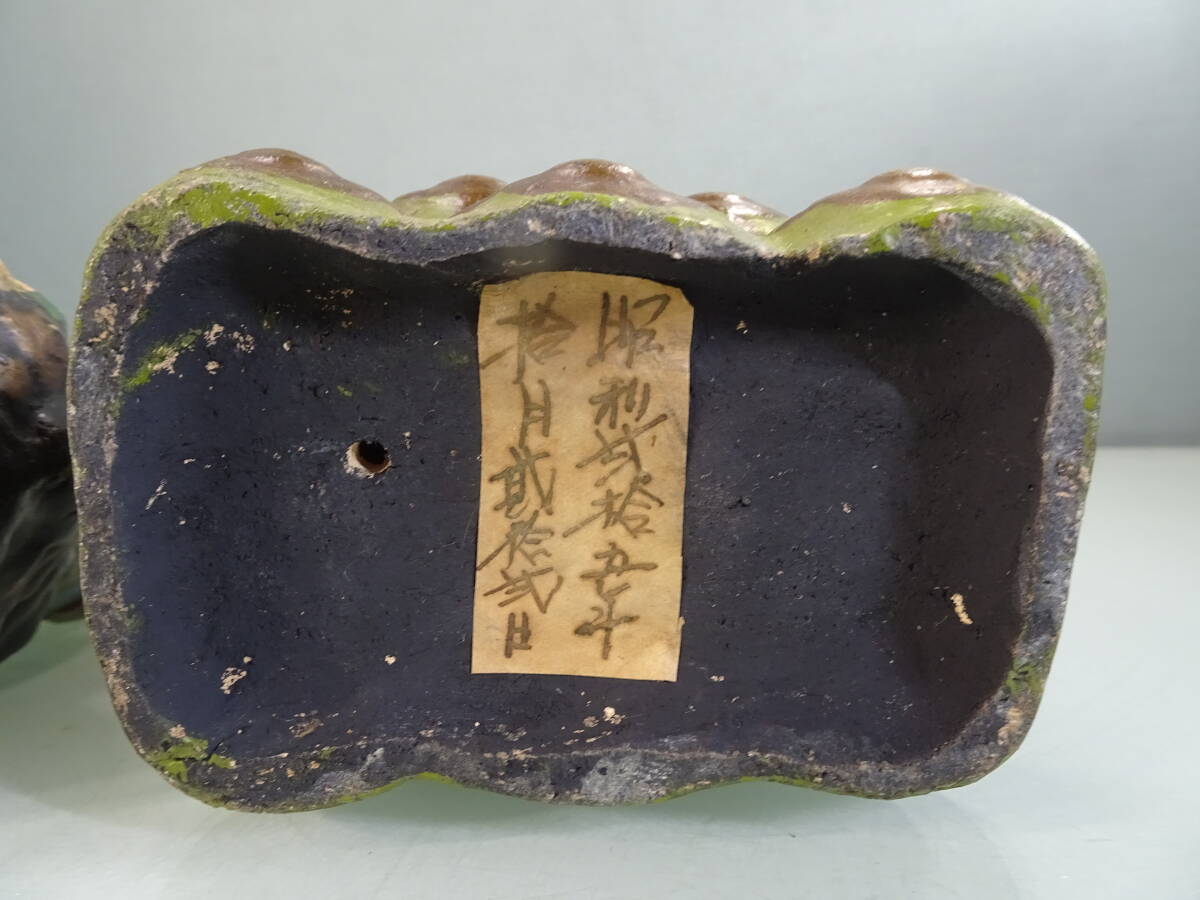 昭和弐拾五年
拾月弐拾弐日